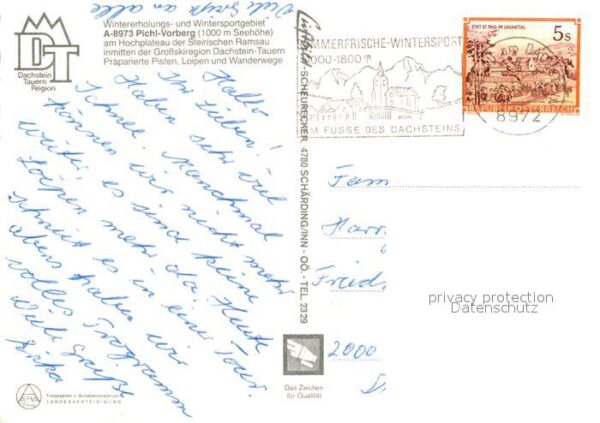 Viele Grüße an alle
Wintererholungs- und Wintersportgebiet
A-8973 Pichl-Vorberg (1000 m Seehöhe)
am Hochplateau der Steirischen Ramsau
inmitten der Großskiregion Dachstein-Tauern
Präparierte Pisten, Loipen und Wanderwege
DT
Dachstein
Tauern
Region
Hallo
Ihr Lieben!
Haben sehr viel
Schnee. Manchmal
können wir nicht mehr
weiter, es sind keine
Loipen mehr da. Heute
schneit es in einer Tour.
Abens haben wir
volles Programm
Viele Grüße
Erika
-SCHEURECKER, 4780 SCHÄRDING/INN - OÖ. - TEL. 2329
MMERFRISCHE-WINTERSPORT
000-1800m
M FUSSE DES DACHSTEINS
8972
STIFT ST. PAUL IM LAVANTTAL
5s
REPUBLIK ÖSTERREICH
Fam
Harr
Fried
2000
privacy protection
Datenschutz
Das Zeichen
für Qualität
Freigegeben v. Bundesministerium f.
LANDESVERTEIDIGUNG